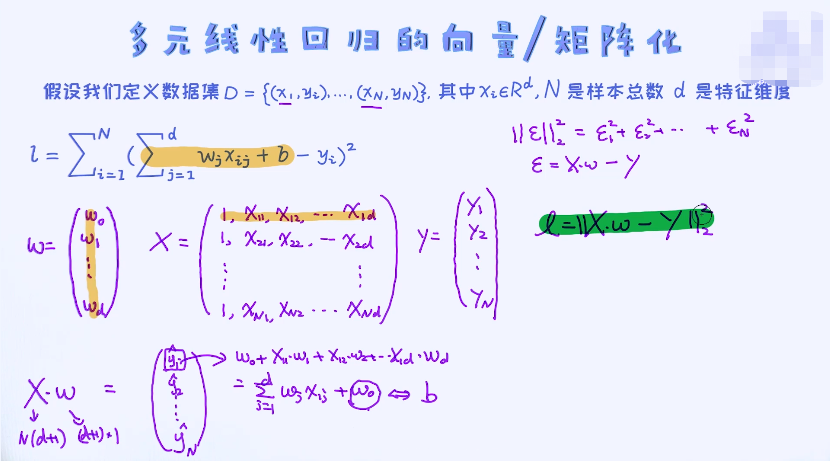 多元线性回归的向量/矩阵化
假设我们定义数据集 D = {(x₁,yᵢ),...,(x_N,y_N)}, 其中 xᵢ∈R^d, N 是样本总数 d 是特征维度
l = ∑_{i=1}^{N} (∑_{j=1}^{d} w_j x_{ij} + b - y_i)²
||ε||₂² = ε₁² + ε₂² + ··· + ε_N²
ε = X·w - Y
w = (w₀ w₁ ⋮ w_d)
X = (1, X₁₁, X₁₂, ··· X_{1d}
1, X₂₁, X₂₂, ··· X_{2d}
⋮ ⋮
1, X_{N1}, X_{N2} ··· X_{Nd})
Y = (Y₁ Y₂ ⋮ Y_N)
l = ||X·w - Y||₂²
X·w = (ŷ₁ ŷ₂ ⋮ ŷ_N)
N(d+1) (d+1)×1
w₀ + X₁₁·w₁ + X₁₂·w₂ + ··· X_{1d}·w_d
= ∑_{j=1}^{d} w_j x_{1j} + w₀ ⇔ b